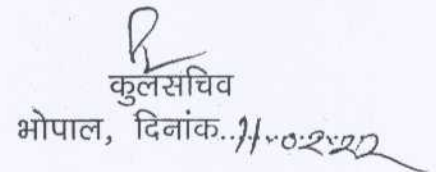 कुलसचिव
भोपाल, दिनांक..11.02.22